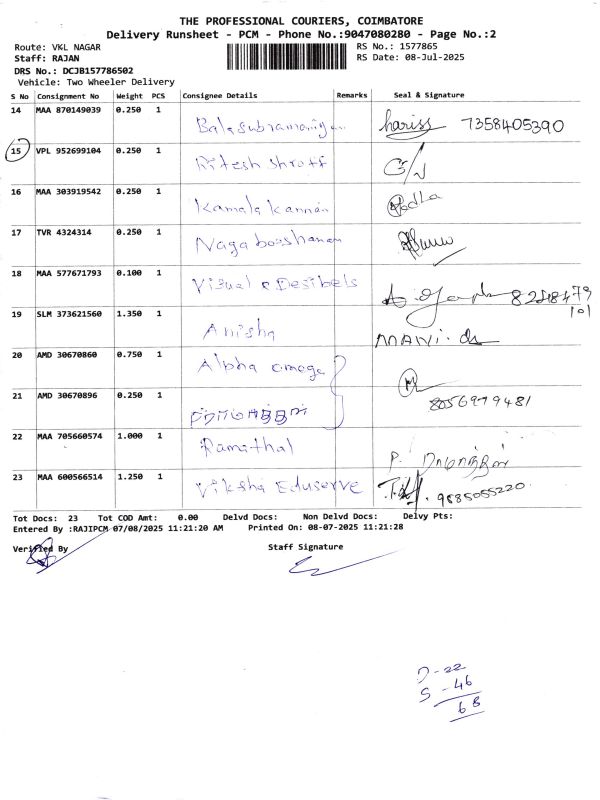 THE PROFESSIONAL COURIERS, COIMBATORE
Delivery Runsheet - PCM - Phone No.:9047080280 - Page No.:2
Route: VKL NAGAR
RS No.: 1577865
Staff: RAJAN
RS Date: 08-Jul-2025
DRS No.: DCJB157786502
Vehicle: Two Wheeler Delivery
S No Consignment No Weight PCS Consignee Details Remarks Seal & Signature
14 MAA 870149039 0.250 1 Balasubramaniyan hariss 7358405390
15 VPL 952699104 0.250 1 Ritesh shroff
16 MAA 303919542 0.250 1 Kamala kannan
17 TVR 4324314 0.250 1 Nagabooshanam
18 MAA 577671793 0.100 1 Visual & Desibels
19 SLM 373621560 1.350 1 Anisha MANI
20 AMD 30670860 0.750 1 Alpha omega
21 AMD 30670896 0.250 1 8056979481
22 MAA 705660574 1.000 1 Ramathal P.
23 MAA 600566514 1.250 1 Viksha Eduserve 9885055220
Tot Docs: 23 Tot COD Amt: 0.00 Delvd Docs: Non Delvd Docs: Delvy Pts:
Entered By :RAJIPCM 07/08/2025 11:21:20 AM Printed On: 08-07-2025 11:21:28
Verified By Staff Signature
D-22
S-46
68